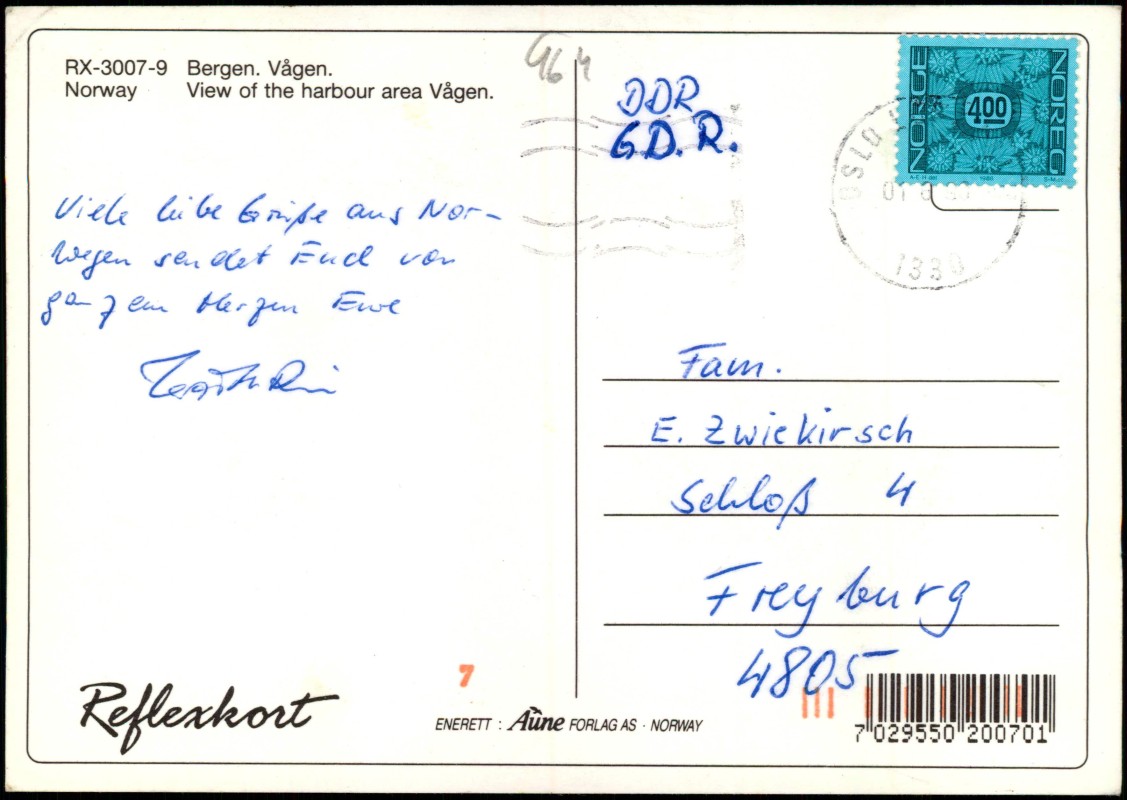 RX-3007-9 Bergen. Vågen.
Norway View of the harbour area Vågen.
964
DDR
G.D.R.
NORGE
400
NOREG
OSLO
1330
Viele liebe Grüße aus Nor-
wegen sendet Euch von
ganzem Herzen Eure
Fam.
E. Zwiekirsch
Schloß 4
Freyburg
4805
7
Reflexkort
ENERETT : Aune FORLAG AS · NORWAY
7 029550 200701